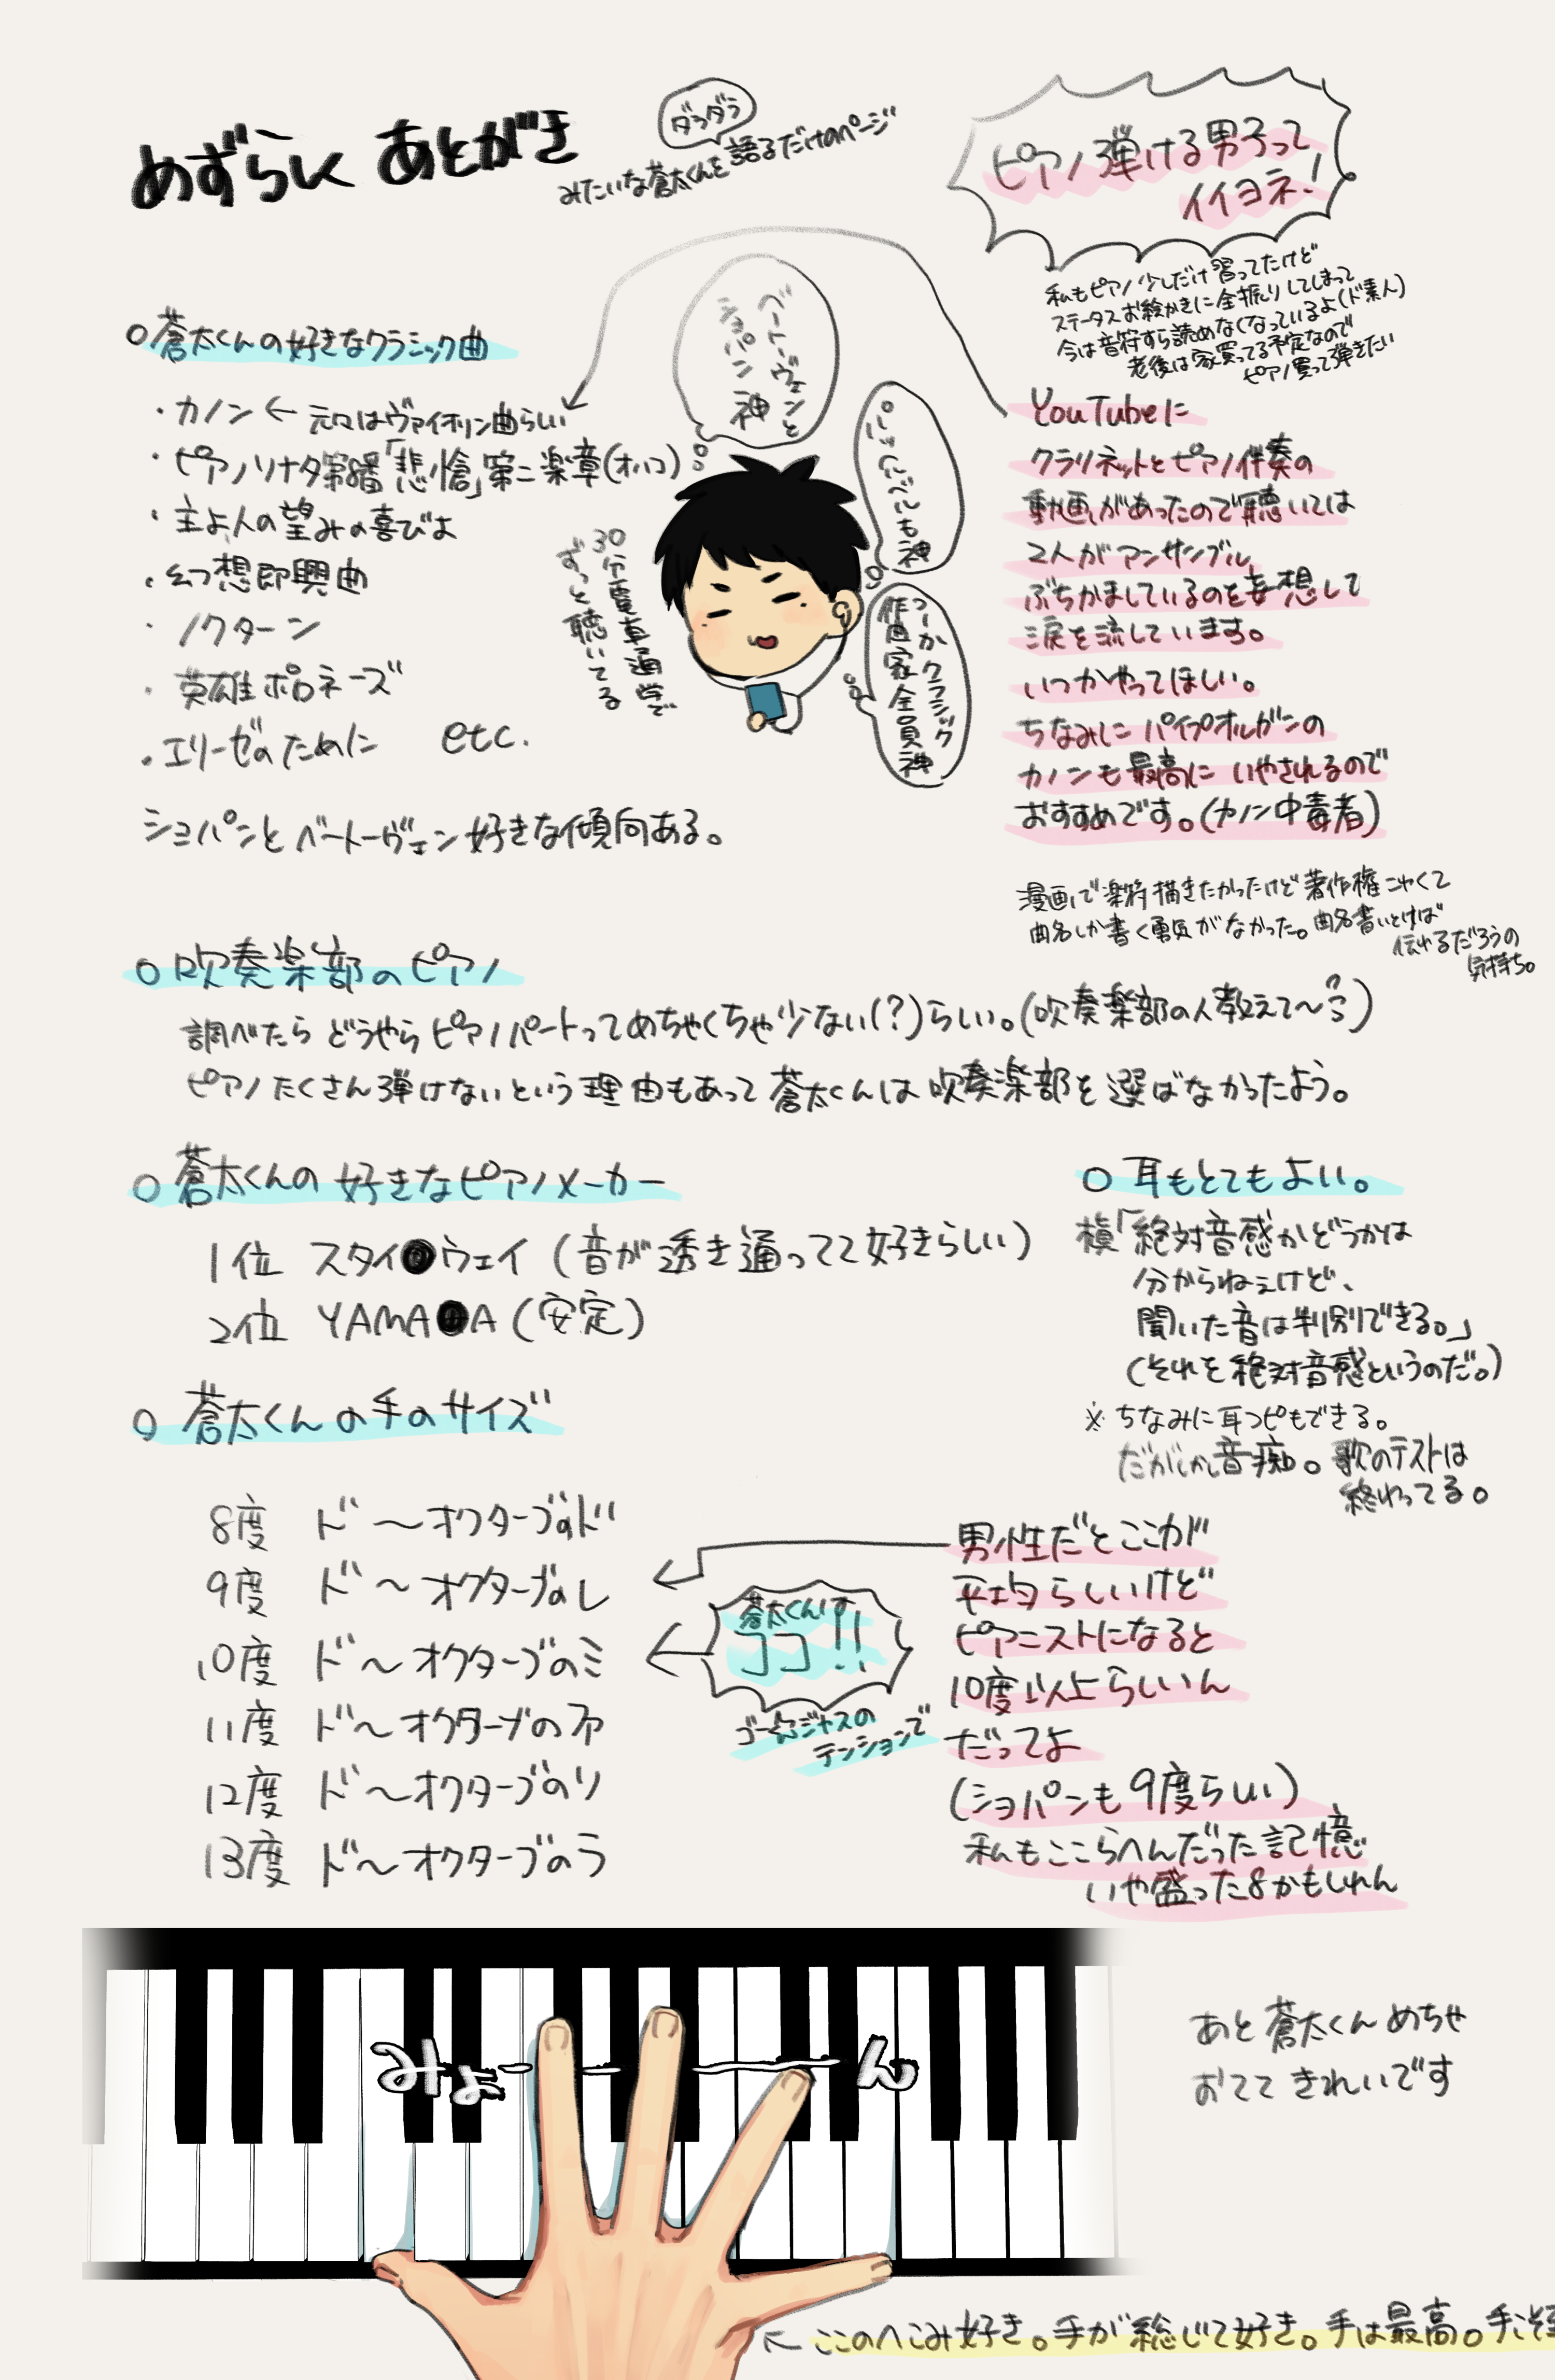 めずらしく あとがき
ダラダラ
みたいな蒼太くんを語るだけのページ
ピアノ弾ける男子って
イイヨネ!
私もピアノ少しだけ習ってたけど
ステータスお絵かきに全振りしてしまって
今は音符すら読めなくなっているよ(ド素人)
老後は家買ってる予定なので
ピアノ買って弾きたい
○蒼太くんの好きなクラシック曲
・カノン ← 元々はヴァイオリン曲らしい
・ピアノソナタ第8番「悲愴」第二楽章(オハコ)
・主よ、人の望みの喜びよ
・幻想即興曲
・ノクターン
・英雄ポロネーズ
・エリーゼのために etc.
ショパンとベートーヴェン好きな傾向ある。
ベートーヴェンと
ショパン神
パッヘルベルも神
つーかクラシック
作曲家全員神
30分電車通学で
ずっと聴いてる
YouTubeに
クラリネットとピアノ伴奏の
動画があったので聴いては
2人がアンサンブル
ぶちかましているのを妄想して
涙を流しています。
いつかやってほしい。
ちなみにパイプオルガンの
カノンも最高にいやされるので
おすすめです。(カノン中毒者)
漫画で楽符描きたかったけど著作権こわくて
曲名しか書く勇気がなかった。曲名書いとけば
伝わるだろうの
気持ち。
○吹奏楽部のピアノ
調べたらどうやらピアノパートってめちゃくちゃ少ない(?)らしい。(吹奏楽部の人教えて〜)
ピアノたくさん弾けないという理由もあって蒼太くんは吹奏楽部を選ばなかったよう。
○蒼太くんの好きなピアノメーカー
1位 スタイ●ウェイ(音が透き通ってて好きらしい)
2位 YAMA●A(安定)
○耳もとてもよい。
槙「絶対音感かどうかは
分からねぇけど、
聞いた音は判別できる。」
(それを絶対音感というのだ。)
※ちなみに耳コピもできる。
だがしかし音痴。歌のテストは
終わってる。
○蒼太くんの手のサイズ
8度 ド〜オクターブのド
9度 ド〜オクターブのレ
10度 ド〜オクターブのミ
11度 ド〜オクターブのファ
12度 ド〜オクターブのソ
13度 ド〜オクターブのラ
蒼太くんは
ココ!!
ゴージャスの
テンションで
男性だとここが
平均らしいけど
ピアニストになると
10度以上らしいん
だってよ
(ショパンも9度らしい)
私もここらへんだった記憶
いや盛った8かもしれん
みょーーーん
あと蒼太くんめちゃ
おててきれいです
←ここのへこみ好き。手が総じて好き。手は最高。手こそ